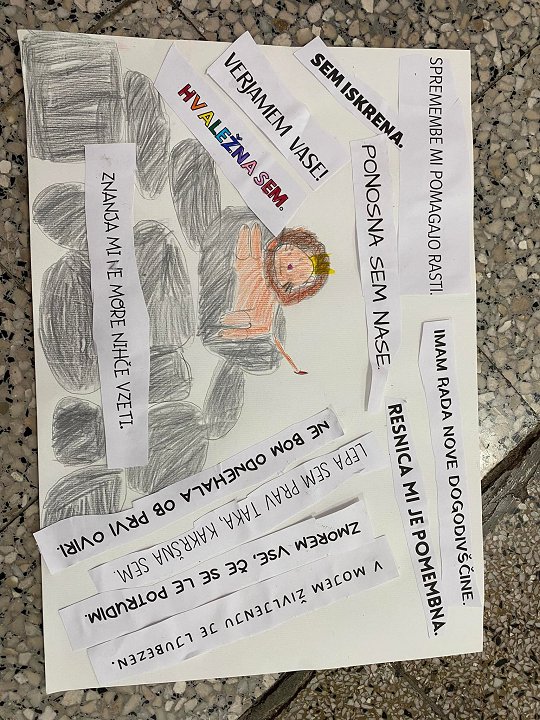 SPREMEMBE MI POMAGAJO RASTI.
IMAM RADA NOVE DOGODIVŠČINE.
SEM ISKRENA.
RESNICA MI JE POMEMBNA.
PONOSNA SEM NASE.
VERJAMEM VASE!
HVALEŽNA SEM.
V MOJEM ŽIVLJENJU JE LJUBEZEN.
ZMOREM VSE, ČE SE LE POTRUDIM.
LEPA SEM PRAV TAKA, KAKRŠNA SEM.
NE BOM ODNEHALA OB PRVI OVIRI.
ZNANJA MI NE MORE NIHČE VZETI.